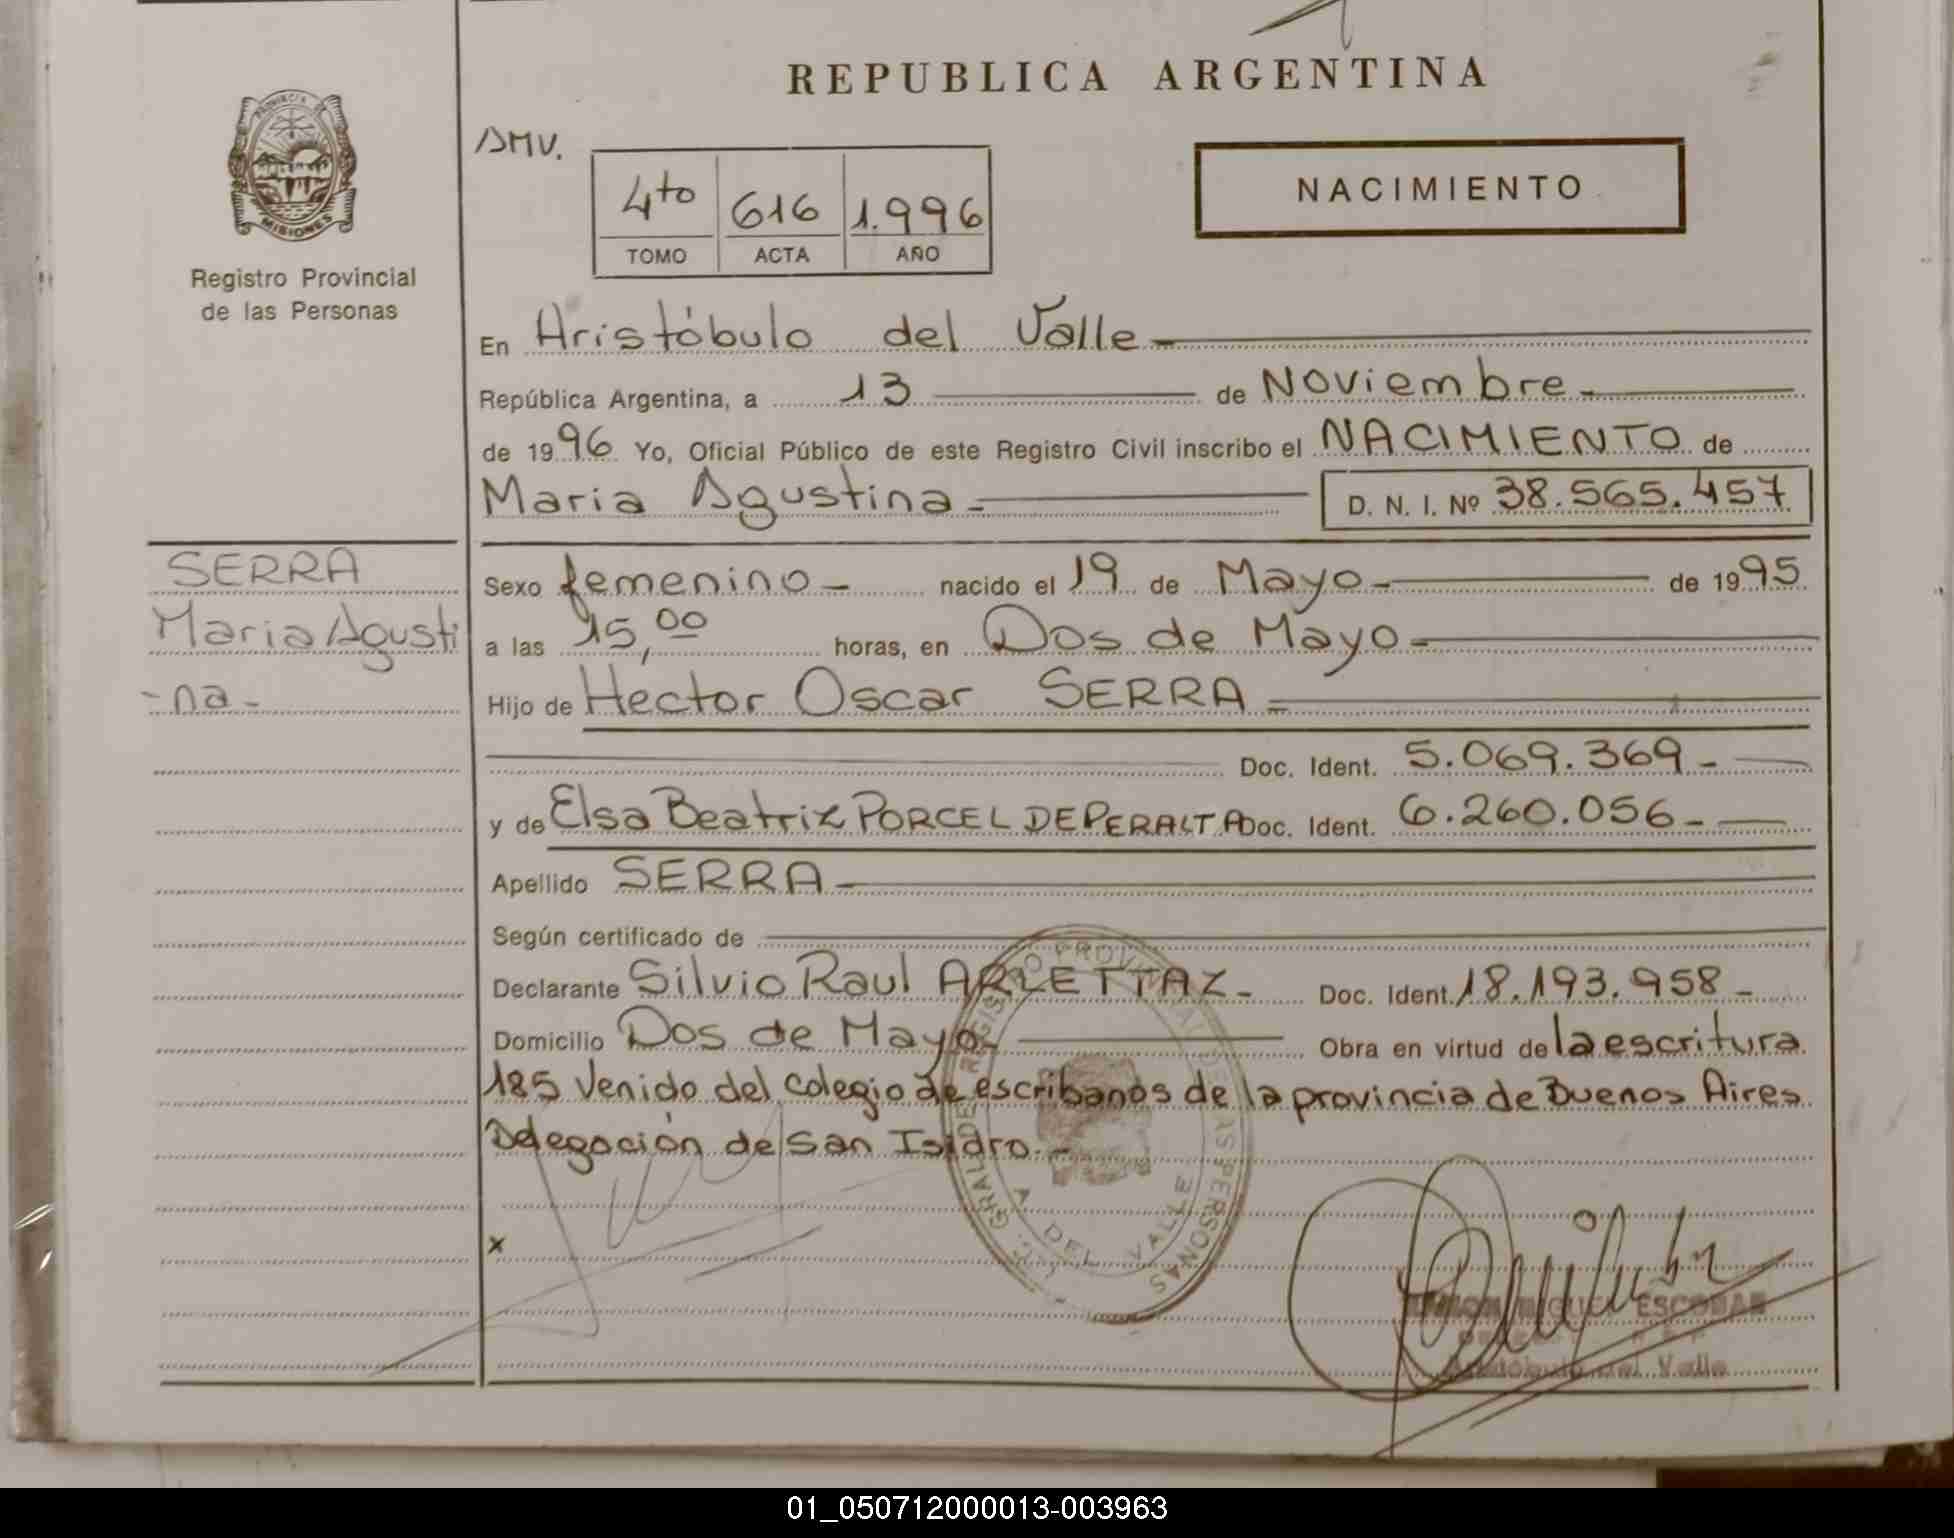 REPUBLICA ARGENTINA
PROVINCIA DE
MISIONES
Registro Provincial
de las Personas
AMV.
4to 616 1.996
TOMO ACTA AÑO
NACIMIENTO
En Aristóbulo del Valle
República Argentina, a 13 de Noviembre
de 1996 Yo, Oficial Público de este Registro Civil inscribo el NACIMIENTO de
Maria Agustina D. N. I. Nº 38.565.457
SERRA
Maria Agusti
-na-
Sexo femenino nacido el 19 de Mayo de 1995
a las 15,00 horas, en Dos de Mayo
Hijo de Hector Oscar SERRA
Doc. Ident. 5.069.369
y de Elsa Beatriz PORCEL DE PERALTA Doc. Ident. 6.260.056
Apellido SERRA
Según certificado de
Declarante Silvio Raul ARLETTAZ Doc. Ident. 18.193.958
Domicilio Dos de Mayo Obra en virtud de la escritura
185 Venido del colegio de escribanos de la provincia de Buenos Aires
Delegación de San Isidro.
x
GRAL DE REGISTRO PROVINCIAL DE LAS PERSONAS
A. DEL VALLE
MIGUEL ESCOBAR
Aristóbulo del Valle
01_050712000013-003963